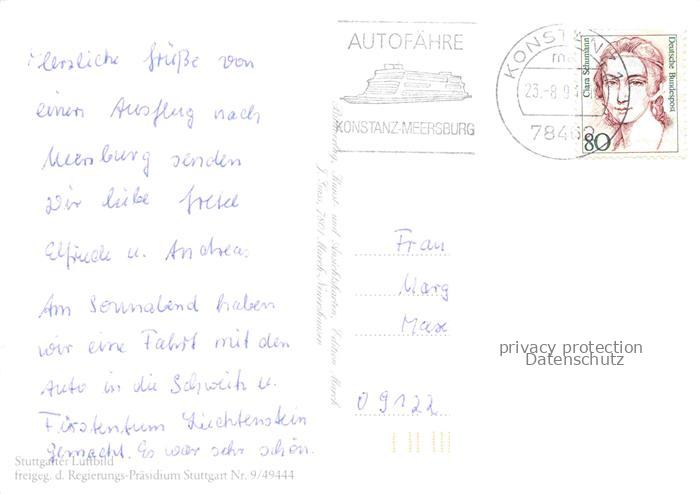 Herzliche Grüße von
einem Ausflug nach
Meersburg senden
Dir liebe Gretel
Elfriede u. Andreas
Am Sonnabend haben
wir eine Fahrt mit den
Auto in die Schweitz u.
Fürstentum Liechtenstein
gemacht. Es war sehr schön.
Stuttgarter Luftbild
freigeg. d. Regierungs-Präsidium Stuttgart Nr. 9/49444
AUTOFÄHRE
KONSTANZ-MEERSBURG
KONSTANZ
23.-8.9
78462
Clara Schumann
Deutsche Bundespost
80
Frau
Marg
Max
09122
privacy protection
Datenschutz